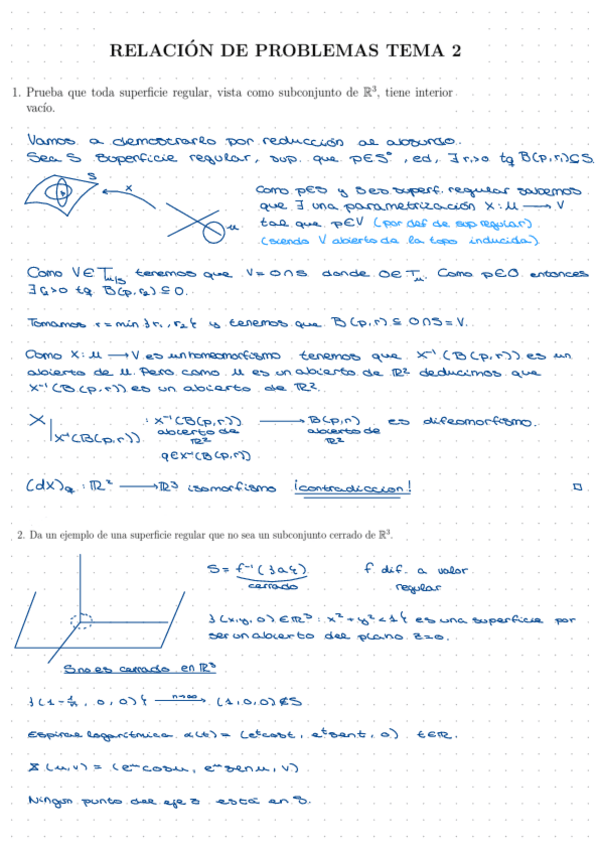 RELACIÓN DE PROBLEMAS TEMA 2
1. Prueba que toda superficie regular, vista como subconjunto de ℝ³, tiene interior
vacío.
Vamos a demostrarlo por reducción al absurdo.
Sea S superficie regular, sup. que p∈S°, ed, ∃ r₁>0 tq B(p,r₁)⊆S.
S
X
u
Como p∈S y S es superf. regular sabemos
que ∃ una parametrización X: U ⟶ V
tal que p∈V (por def de sup regular)
(siendo V abierto de la topo inducida)
Como V∈T_{u|S} tenemos que V=O∩S donde O∈T_u. Como p∈O entonces
∃ r₂>0 tq B(p,r₂)⊆O.
Tomamos r=min{r₁,r₂} y tenemos que B(p,r)⊆O∩S=V.
Como X: U ⟶ V es un homeomorfismo tenemos que X⁻¹(B(p,r)) es un
abierto de U. Pero como U es un abierto de ℝ² deducimos que
X⁻¹(B(p,r)) es un abierto de ℝ².
X|X⁻¹(B(p,r)) : X⁻¹(B(p,r)) ⟶ B(p,r) es difeomorfismo.
abierto de abierto de
ℝ² ℝ²
q∈X⁻¹(B(p,r))
(dX)q : ℝ² ⟶ ℝ³ isomorfismo ¡contradiccion! □
2. Da un ejemplo de una superficie regular que no sea un subconjunto cerrado de ℝ³.
S = f⁻¹({a}) f. dif. a valor
cerrado regular
{(x,y,0)∈ℝ³: x²+y²<1} es una superficie por
ser un abierto del plano z=0.
S no es cerrado en ℝ³
{(1-1/n, 0, 0)} n→∞ ⟶ (1,0,0)∉S.
Espiral logarítmica α(t) = (eᵗcost, eᵗsent, 0) t∈ℝ.
X(u,v) = (eᵘcosu, eᵘsenu, v)
Ningun punto del eje z está en S.